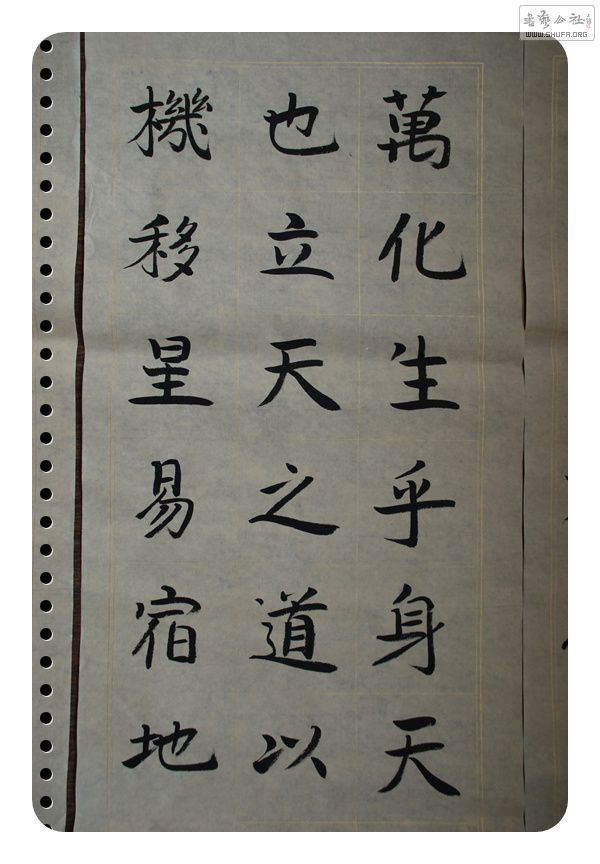 萬化生乎身天
也立天之道以
機移星易宿地
WWW.SHUFA.ORG